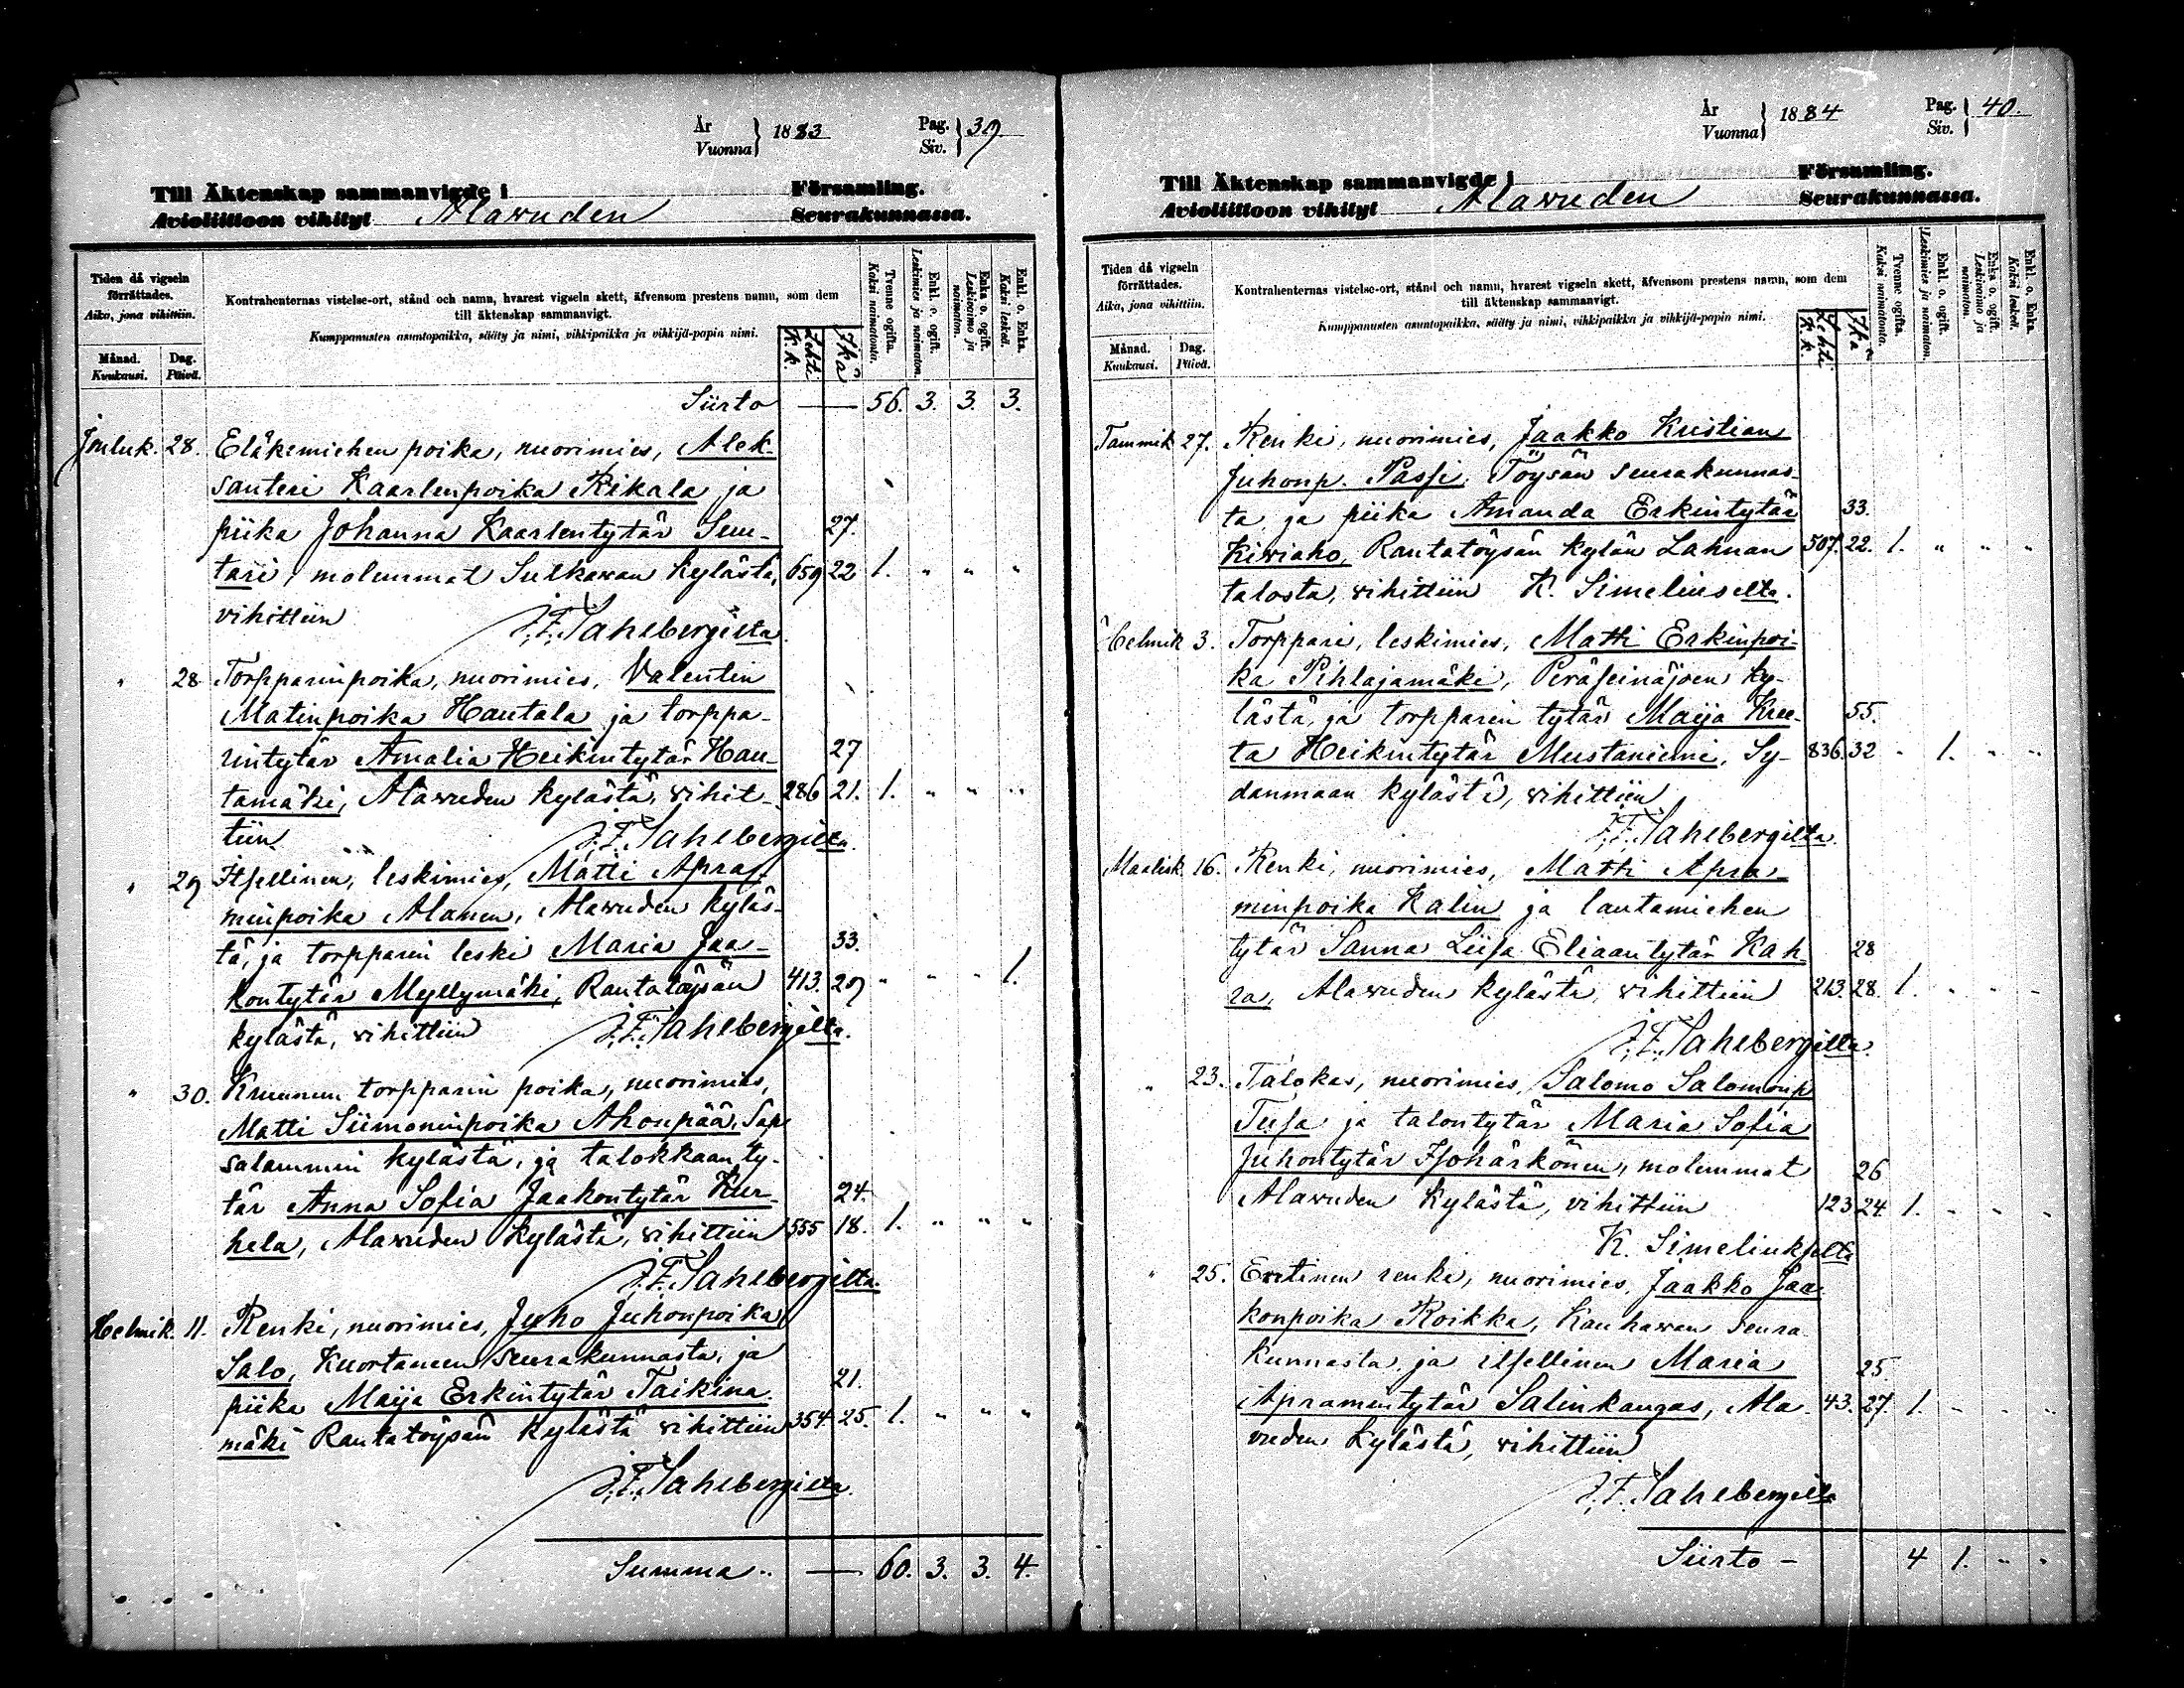 År
Vuonna } 1883
Pag.
Siv. } 39
Till Äktenskap sammanvigde i Församling.
Avioliittoon vihityt Alawuden Seurakunnassa.
Tiden då vigseln förrättades.
Aika, jona vihittiin.
Månad.
Kuukausi.
Dag.
Päivä.
Kontrahenternas vistelse-ort, stånd och namn, hvarest vigseln skett, äfvensom prestens namn, som dem
till äktenskap sammanvigt.
Kumppanusten asuntopaikka, sääty ja nimi, vihkipaikka ja vihkijä-papin nimi.
K.k. Lehti
Ikä
Tvenne ogifta.
Kaksi naimatonta.
Enkl. o. ogift.
Leskimies ja naimaton.
Enka o. ogift.
Leskivaimo ja naimaton.
Enkl. o. Enka.
Kaksi leskeä.
Siirto — 56. 3. 3. 3.
Jouluk. 28. Eläkemiehen poika, nuorimies, Alek-
santeri Kaarlenpoika Rikala ja
piika Johanna Kaarlentytär Suu- 27.
tari, molemmat Sulkawan kylästä, 659 22 1. " " "
vihittiin J.F. Sahlbergilta.
" 28 Torpparinpoika, nuorimies, Valentin
Matinpoika Hautala ja torppa-
rintytär Amalia Heikintytär Hau- 27
tamäki, Alawuden kylästä, vihit- 286 21. 1. " " "
tiin J.F. Sahlbergilta.
" 29 Itsellinen, leskimies, Matti Apra-
minpoika Alanen, Alawuden kyläs-
tä, ja torpparin leski Maria Jaa- 33.
kontytär Myllymäki, Rantatöysän 413. 29 " " " 1.
kylästä, vihittiin J.F. Sahlbergilta.
" 30. Kruunun torpparin poika, nuorimies,
Matti Siimoninpoika Ahonpää, Sap-
salammin kylästä, ja talokkaan ty-
tär Anna Sofia Jaakontytär Kur- 24.
hela, Alawuden kylästä, vihittiin 555 18. 1. " " "
J.F. Sahlbergilta.
Helmik. 11. Renki, nuorimies, Juho Juhonpoika
Salo, Kuortaneen seurakunnasta, ja
piika Maija Erkintytär Taikina- 21.
mäki Rantatöysän kylästä vihittiin 354 25. 1. " " "
J.F. Sahlbergilta.
Summa — 60. 3. 3. 4.
År
Vuonna } 1884
Pag.
Siv. } 40.
Till Äktenskap sammanvigde i Församling.
Avioliittoon vihityt Alawuden Seurakunnassa.
Tiden då vigseln förrättades.
Aika, jona vihittiin.
Månad.
Kuukausi.
Dag.
Päivä.
Kontrahenternas vistelse-ort, stånd och namn, hvarest vigseln skett, äfvensom prestens namn, som dem
till äktenskap sammanvigt.
Kumppanusten asuntopaikka, sääty ja nimi, vihkipaikka ja vihkijä-papin nimi.
K.k. Lehti
Ikä
Tvenne ogifta.
Kaksi naimatonta.
Enkl. o. ogift.
Leskimies ja naimaton.
Enka o. ogift.
Leskivaimo ja naimaton.
Enkl. o. Enka.
Kaksi leskeä.
Tammik 27. Renki, nuorimies, Jaakko Kristian
Juhonp. Passi, Töysän seurakunnas-
ta, ja piika Amanda Erkintytär 33.
Kiwiaho, Rantatöysän kylän Lahnan 507. 22. 1. " " "
talosta, vihittiin K. Simeliuselta.
Helmik 3. Torppari, leskimies, Matti Erkinpoi-
ka Pihlajamäki, Peräseinäjoen ky-
lästä, ja torpparin tytär Maija Kree- 55.
ta Heikintytär Mustaniemi, Sy- 836. 32 " 1. " "
danmaan kylästä, vihittiin
J.F. Sahlbergilta.
Maalisk. 16. Renki, nuorimies, Matti Apra-
minpoika Kalin ja lautamiehen
tytär Sanna Liisa Eliaantytär Kah- 28
ra, Alawuden kylästä, vihittiin 213. 28. 1. " " "
J.F. Sahlbergilta.
" 23. Talokas, nuorimies, Salomo Salomonp
Tusa ja talontytär Maria Sofia
Juhontytär Isohärkönen, molemmat 26
Alawuden kylästä, vihittiin 123 24. 1. " " "
K. Simeliukselta
" 25. Entinen renki, nuorimies, Jaakko Jaa-
konpoika Roikka, Kauhawan seura-
kunnasta, ja itsellinen Maria 25
Apramintytär Salinkangas, Ala- 43. 27. 1. " " "
vuden kylästä, vihittiin
J.F. Sahlbergilta
Siirto — 4 1. " "